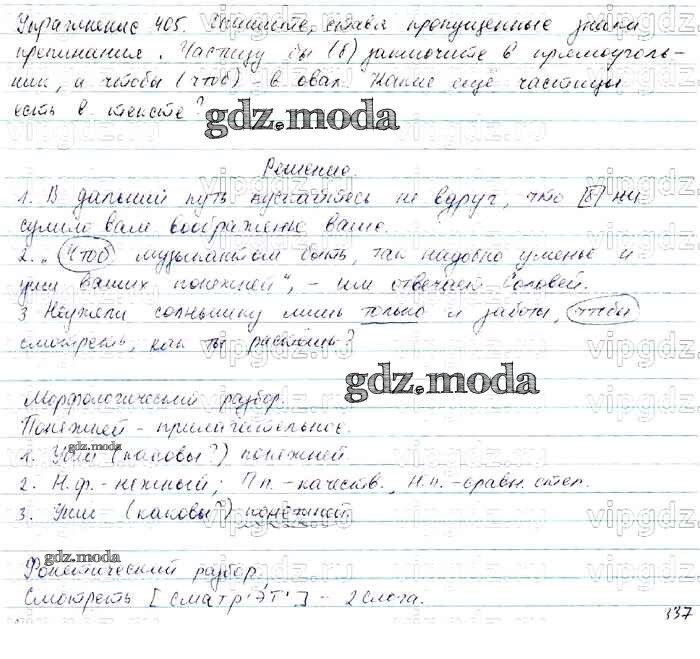 Упражнение 405. Выпишите, ставя пропущенные знаки
препинания. Частицу бы (б) заключите в прямоуголь-
ник, а чтобы (чтоб) в овал. Какие ещё частицы
есть в тексте?
gdz.moda
Решение
1. В дальний путь пускайтесь не вдруг, что [б] ни
сулило вам воображенье ваше.
2. „Чтоб музыкантом быть, так надобно уменье и
уши ваших понежней", - им отвечает Соловей.
3 Неужели солнышку лишь только и заботы, чтобы
смотреть, как ты растёшь?
gdz.moda
Морфологический разбор.
Понежней - прилагательное.
gdz.moda
1. Уши (каковы?) понежней
2. Н.ф. - нежный; Пп. - качеств., Н.п. - сравн. степ.
3. Уши (каковы?) понежней.
gdz.moda
Фонетический разбор.
Смотреть [сматр'эт'] - 2 слога.
337